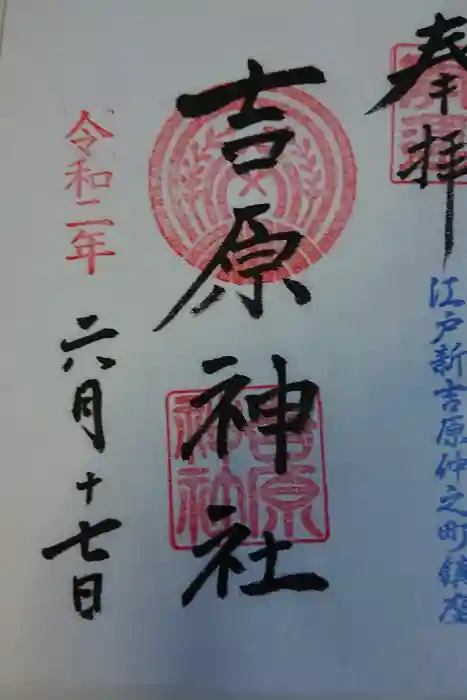 奉拝
江戸新吉原仲之町鎮座
吉原神社
吉原
神社
令和二年
六月十七日